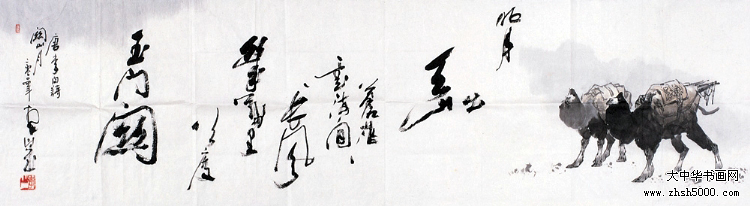 明月
出
天山
蒼茫
雲海間
長風
幾萬里
吹度
玉門關
唐李白詩
關山月
大中华书画网
www.zhsh5000.com